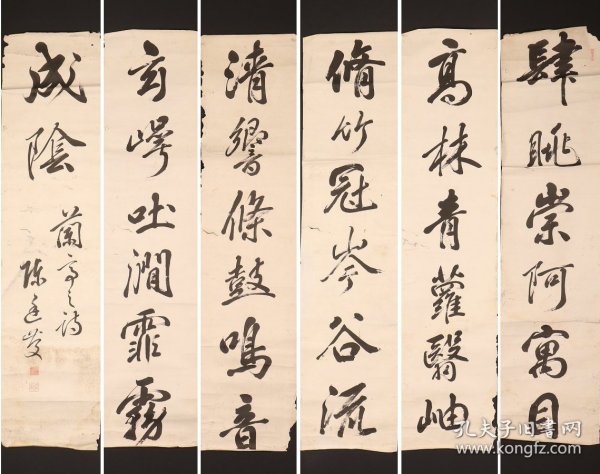 肆眺崇阿寓目
高林青蘿翳岫
脩竹冠岑谷流
清響條鼓鳴音
玄崿吐澗霏霧
成陰
蘭亭之詩
孔夫子旧书网
kongfz.com